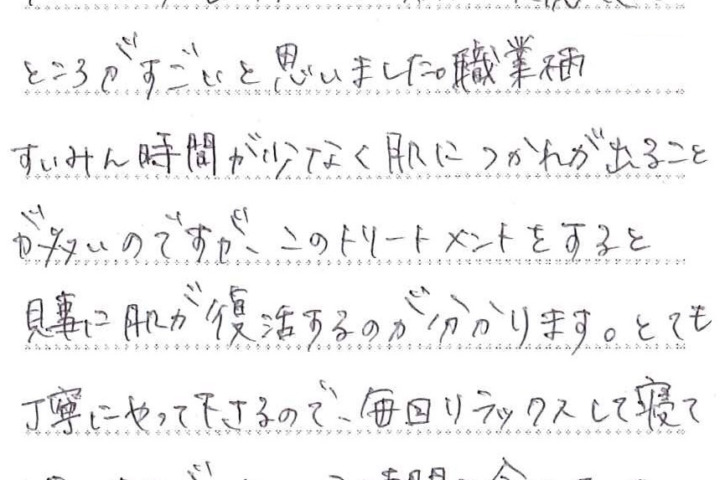 ところがすごいと思いました。職業柄
すいみん時間が少なく肌につかれが出ること
が多いのですが、このトリートメントをすると
見事に肌が復活するのが分かります。とても
丁寧にやって下さるので、毎回リラックスして寝て